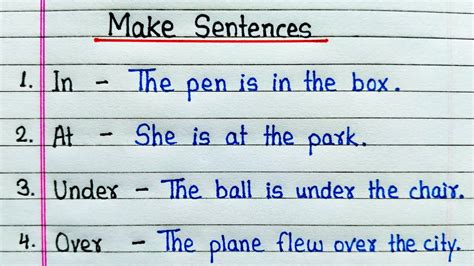 Make Sentences
1. In - The pen is in the box.
2. At - She is at the park.
3. Under - The ball is under the chair.
4. Over - The plane flew over the city.